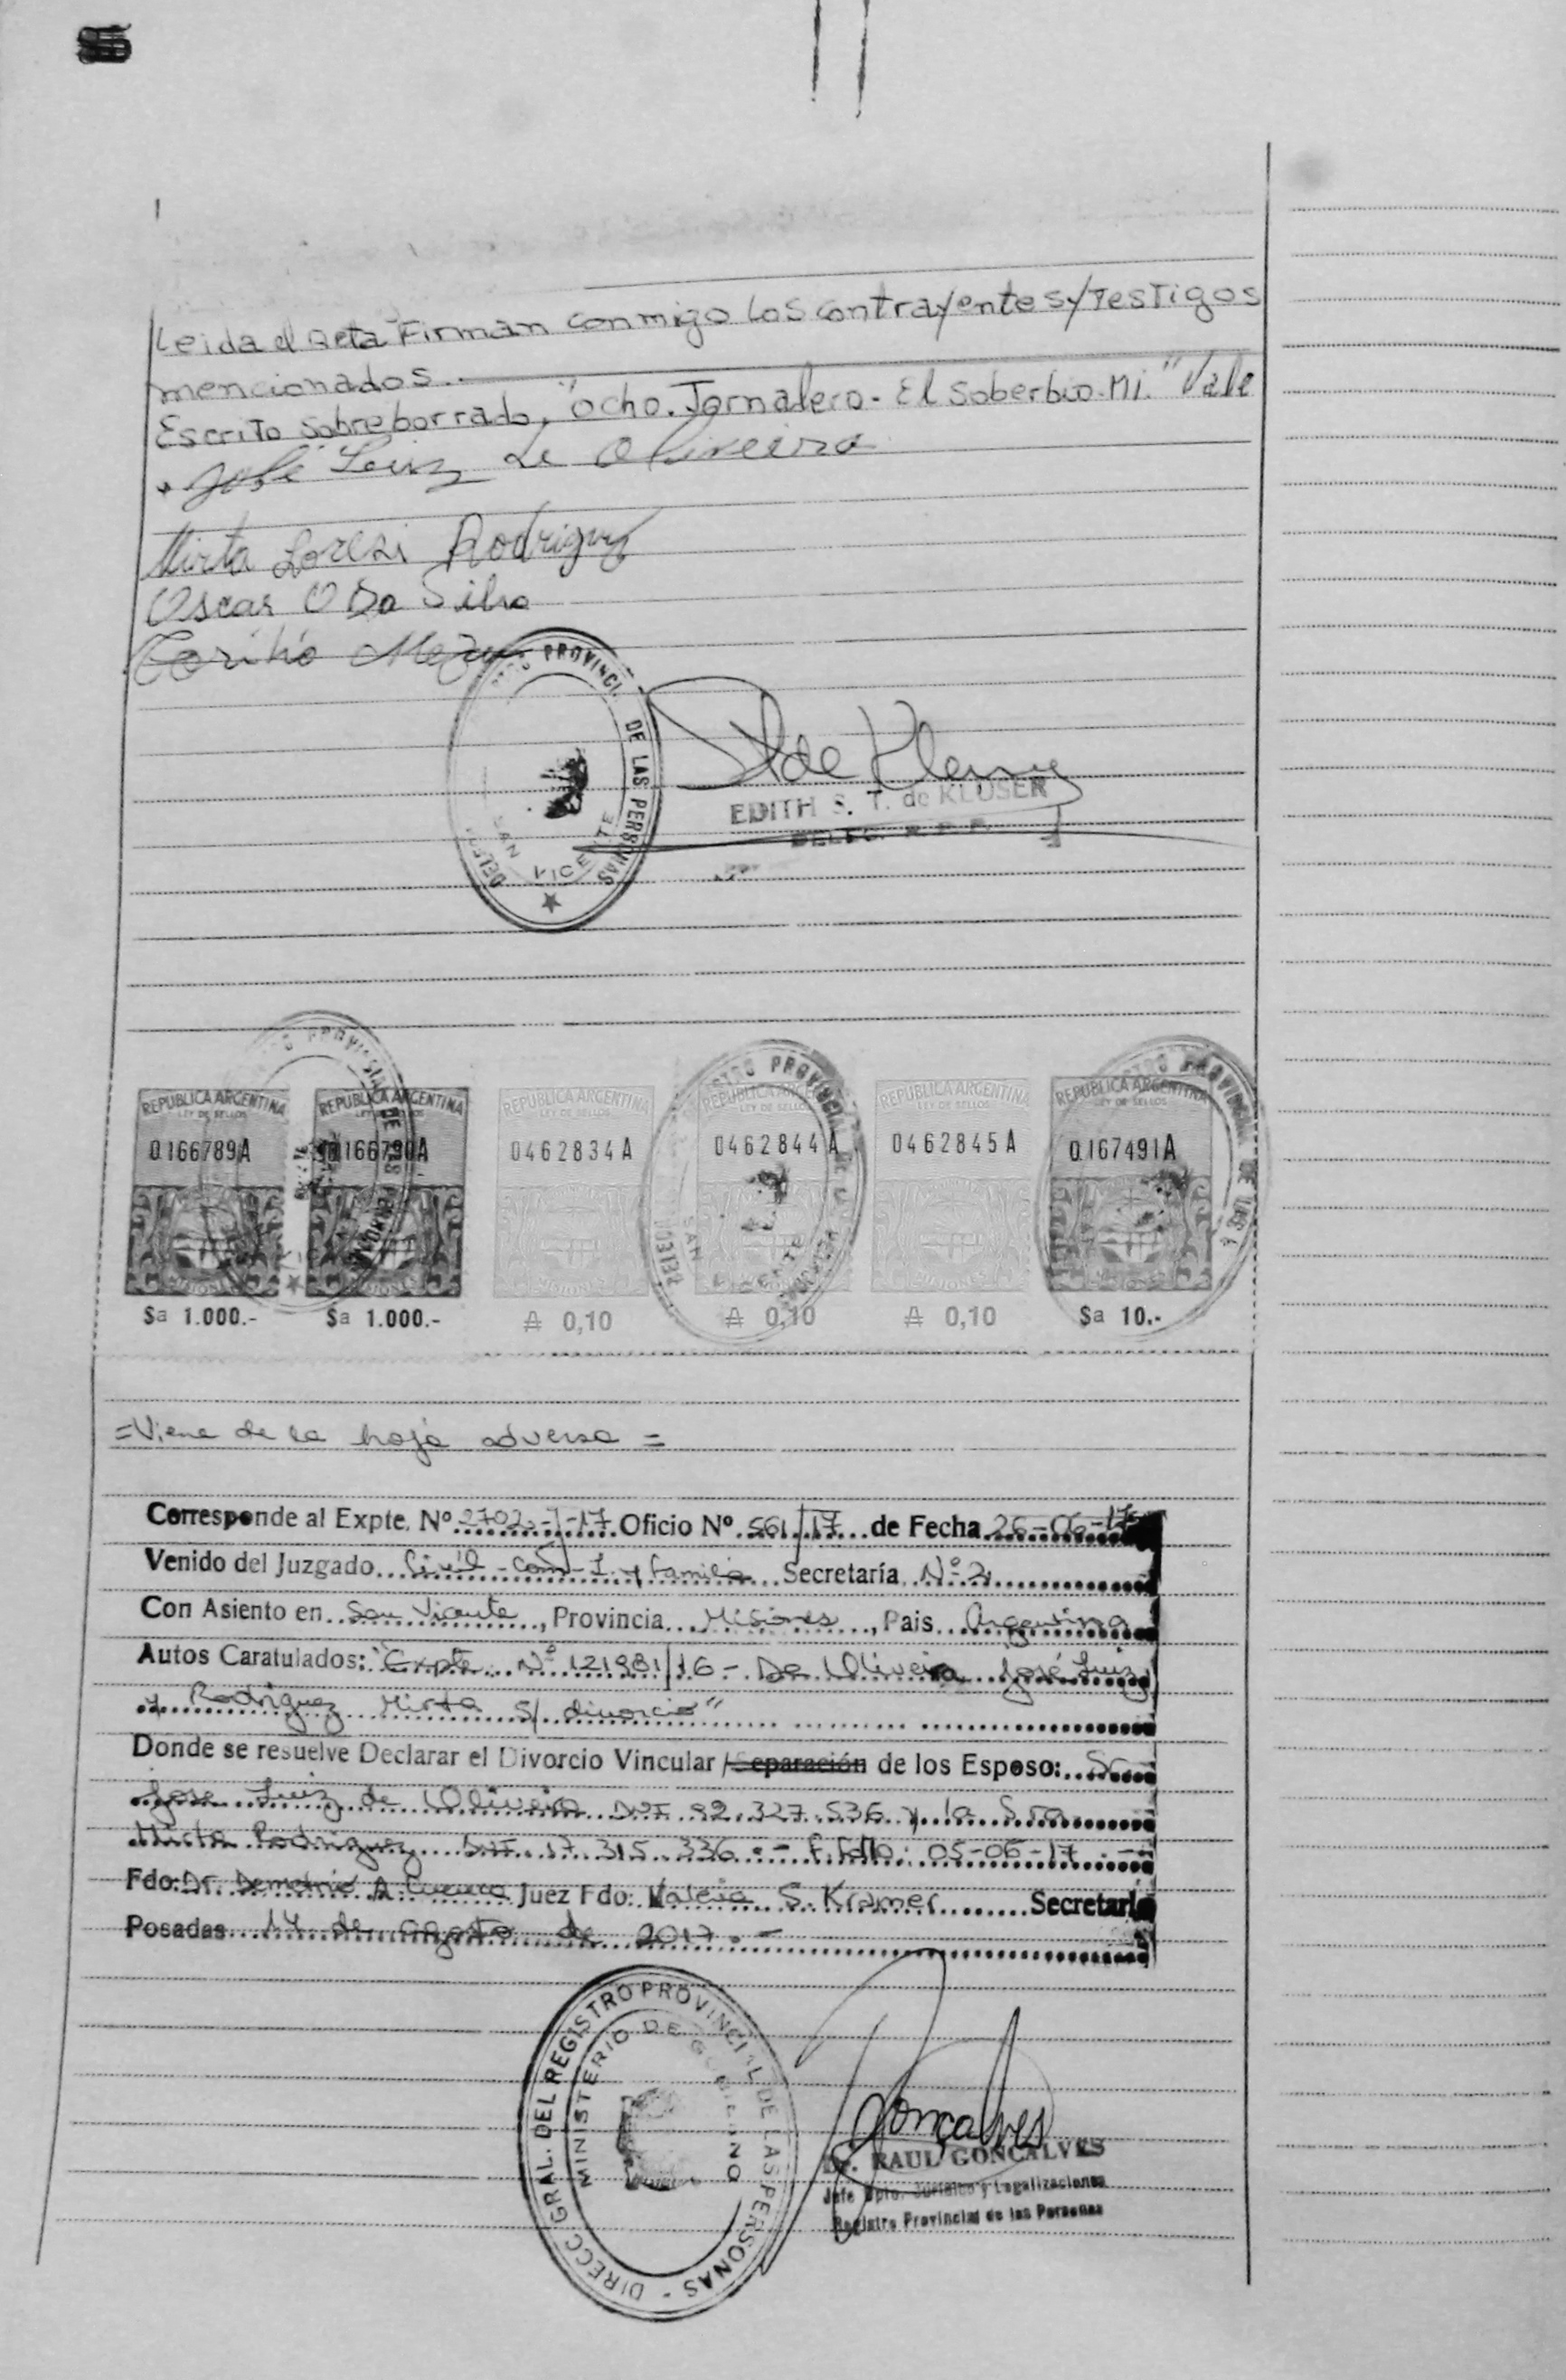 Leida el acta Firman conmigo los contrayentes y Testigos
mencionados.
Escrito sobre borrado, "ocho. Jornalero - El Soberbio. Mi." Vale
José Luiz de Oliveira
Mirta Rodriguez
Oscar O Da Silva
PROVINCI DE LAS PERSONAS
SAN VICENTE
EDITH S. T. de KLUSER
DELEG. R. P. P.
REPUBLICA ARGENTINA REPUBLICA ARGENTINA REPUBLICA ARGENTINA REPUBLICA ARGENTINA REPUBLICA ARGENTINA REPUBLICA ARGENTINA
LEY DE SELLOS LEY DE SELLOS LEY DE SELLOS LEY DE SELLOS LEY DE SELLOS LEY DE SELLOS
0166789A 0166790A 0462834A 0462844A 0462845A 0167491A
MISIONES MISIONES MISIONES MISIONES MISIONES MISIONES
$a 1.000.- $a 1.000.- ₳ 0,10 ₳ 0,10 ₳ 0,10 $a 10.-
=Viene de la hoja adversa=
Corresponde al Expte. Nº 2702-J-17 Oficio Nº 561/17 de Fecha 26-06-17
Venido del Juzgado Civil - Com - L. y Familia Secretaría Nº 2
Con Asiento en San Vicente, Provincia Misiones, Pais Argentina
Autos Caratulados: "Expte Nº 121981/16 - De Oliveira José Luiz
y Rodriguez Mirta s/ divorcio"
Donde se resuelve Declarar el Divorcio Vincular /Separación de los Esposo: Sr
Jose Luiz de Oliveira DNI 92.327.536 y la Sra
Mirta Rodriguez DNI 17.315.336.- F. Fallo: 05-06-17.-
Fdo: Dr. Demetrio A Cuenca Juez Fdo: Valeria S. Kramer Secretaria
Posadas 14 de agosto de 2017.-
DIRECC. GRAL. DEL REGISTRO PROVINCIAL DE LAS PERSONAS -
MINISTERIO DE GOBIERNO
Goncalves
Dr. RAUL GONCALVES
Jefe Dpto. Jurídico y Legalizaciones
Registro Provincial de las Personas